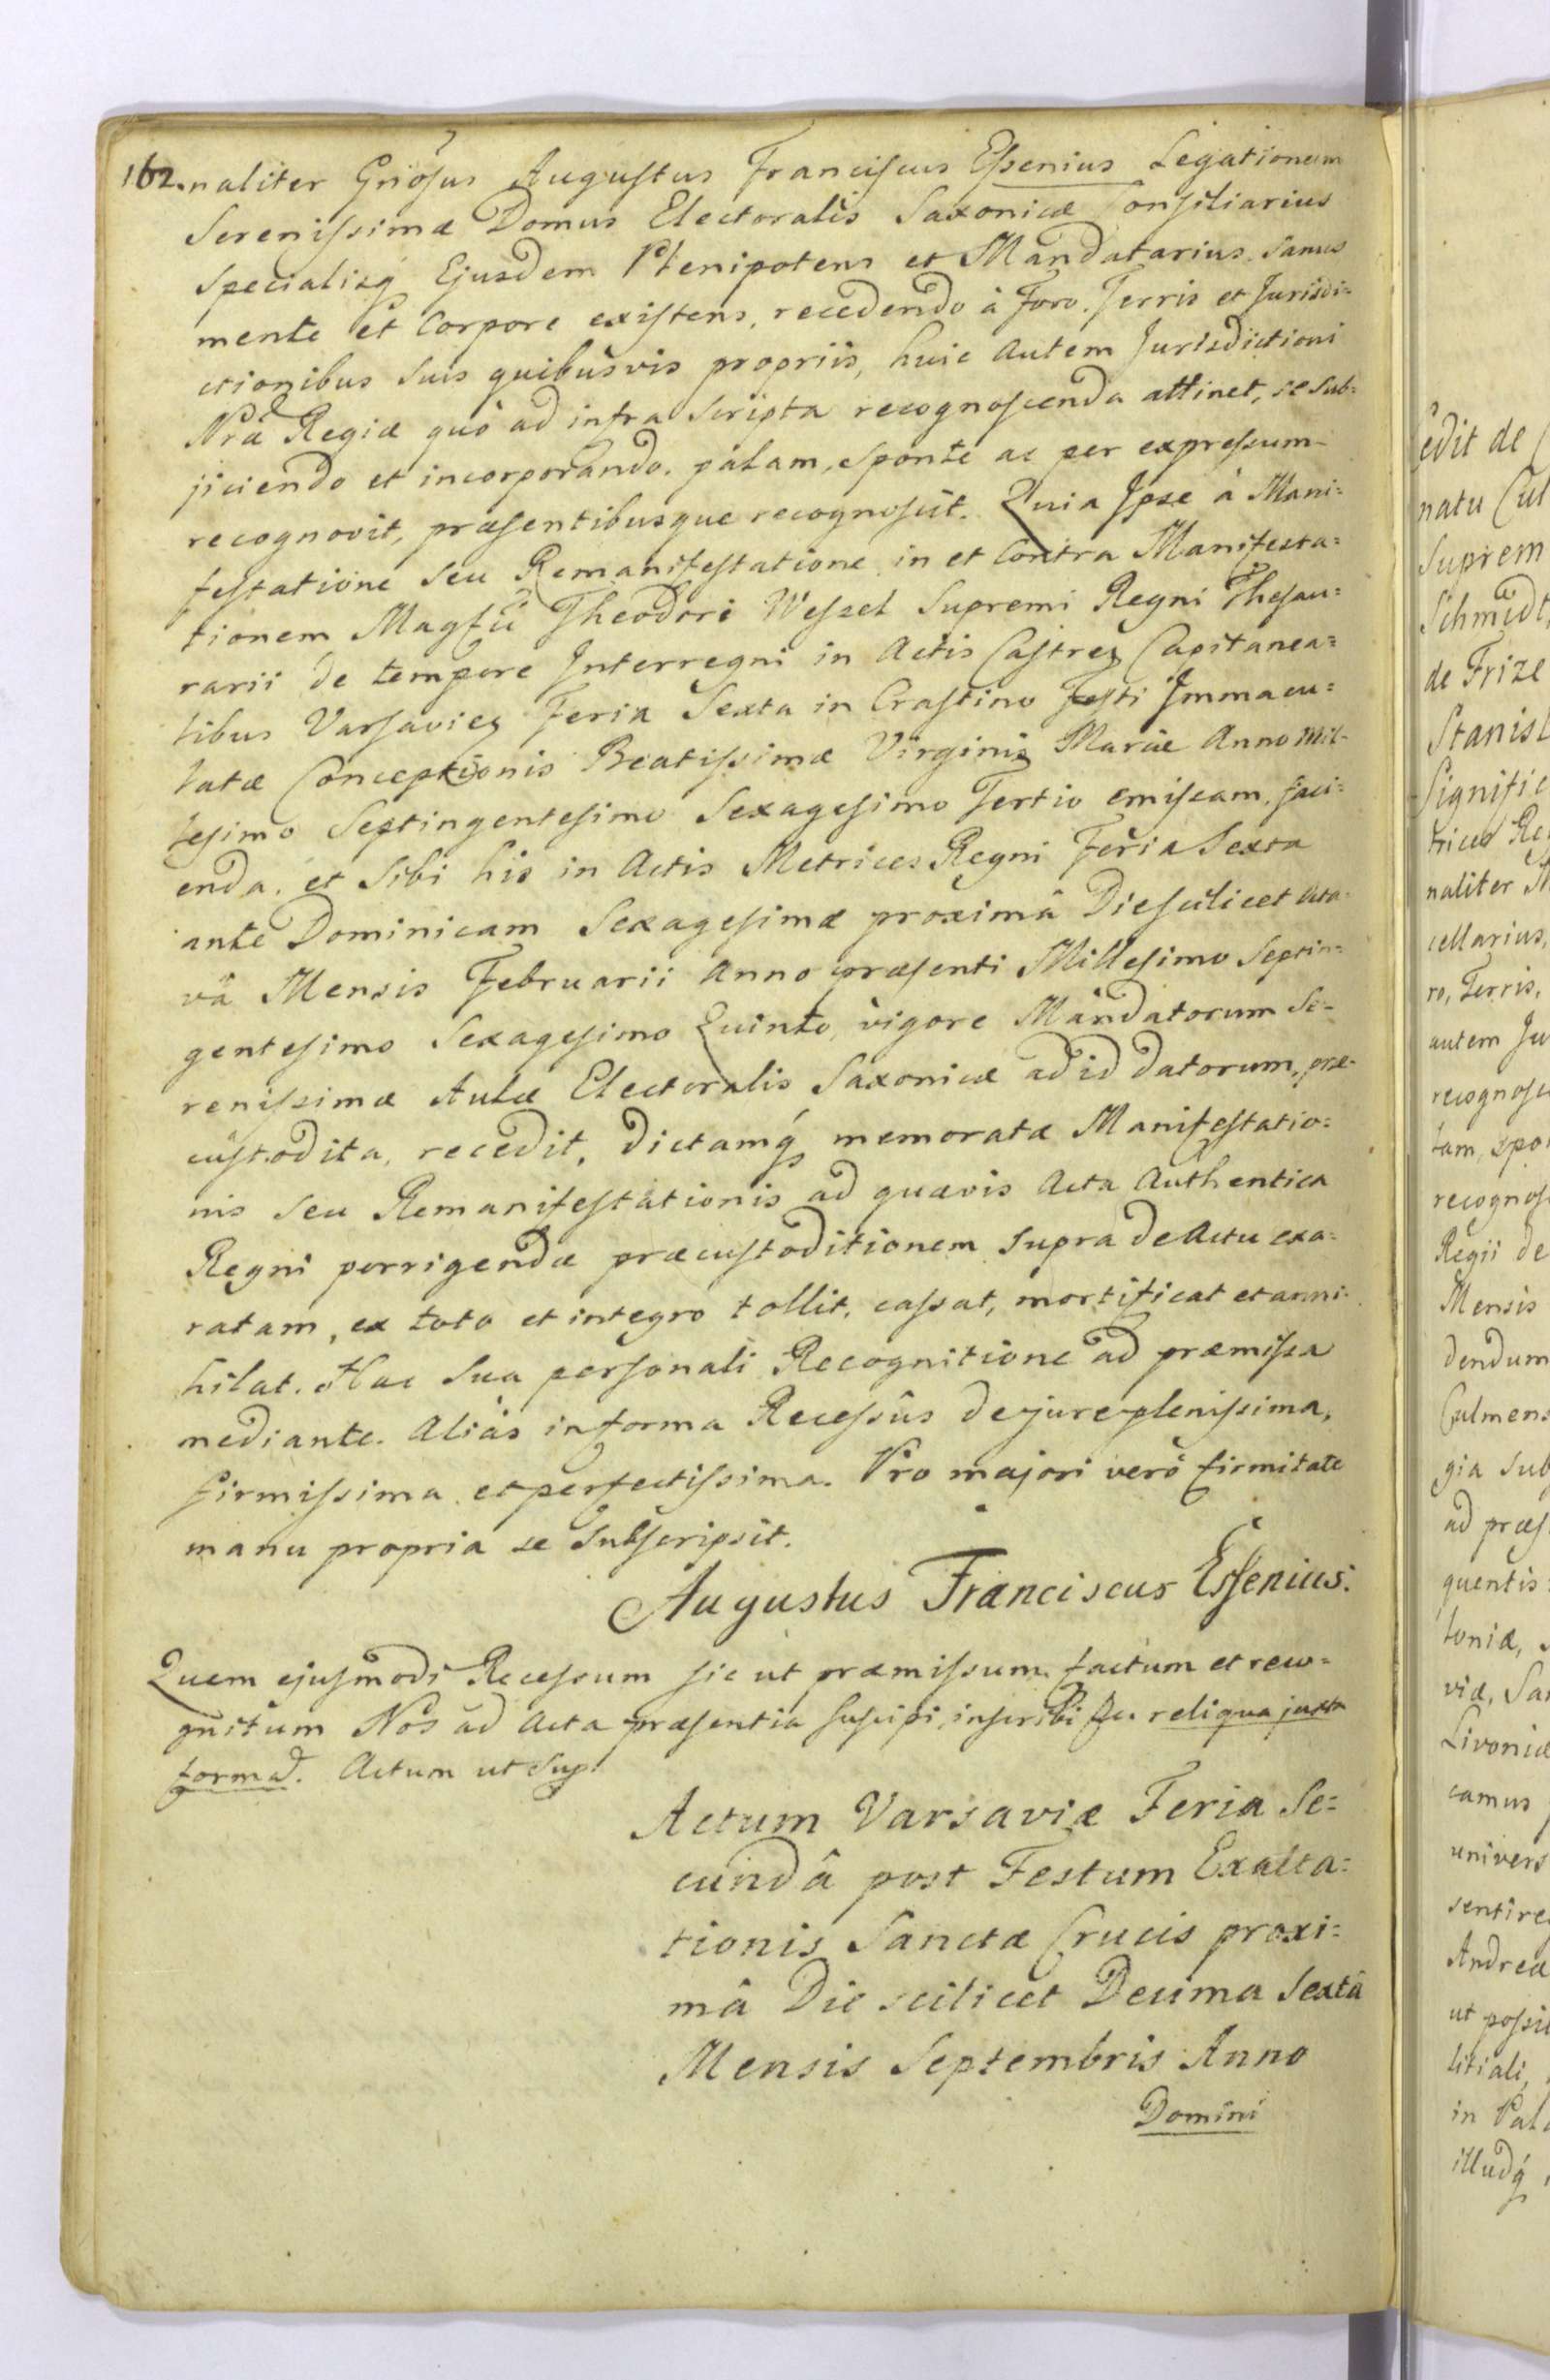 162. naliter Gnosus Augustus Franciscus Essenius Legationum
Serenissimæ Domus Electoralis Saxonicæ Consiliarius
Specialisq́ Ejusdem Plenipotens et Mandatarius Sanus
mente et Corpore existens, recedendo à Foro, Terris et Jurisdi=
ctionibus Suis quibusvis propriis, huic autem Jurisdictioni
Nrã Regiæ quò ad infra Scripta recognoscenda attinet, se sub=
jiciendo et incorporando, palam, sponte ac per expressum
recognovit, præsentibusque recognoscit. Quia Ipse à Mani=
festatione seu Remanifestatione in et Contra Manifesta=
tionem Magfü Theodori Wessel Supremi Regni Thesau=
rarii de tempore Interregni in Actis Castreň Capitanea=
libus Varsavieň Feria Sexta in Crastino Festi Immacu=
latæ Conceptionis Beatissimæ Virginis Mariæ Anno Mil=
lesimo Septingentesimo Sexagesimo Tertio emissam, faci=
enda, et Sibi his in Actis Metrices Regni Feria Sexta
ante Dominicam Sexagesimæ proximâ Die scilicet octa=
vâ Mensis Februarii Anno præsenti Millesimo Septin=
gentesimo Sexagesimo Quinto, vigore Mandatorum Se=
renissimæ Aulæ Electoralis Saxonicæ ad id Datorum, præ=
custodita, recedit, Dictamq́ memoratæ Manifestatio=
nis seu Remanifestationis ad quævis Acta Authentica
Regni porrigendæ præcustoditionem supra de Actu exa=
ratam, ex toto et integro tollit, cassat, mortificat et anni=
hilat. Hac Sua personali Recognitione ad præmissa
mediante. Aliàs in forma Recessûs de jure plenissima,
firmissima et perfectissima. Pro majori verò firmitate
manu propria se Subscripsit.
Augustus Franciscus Essenius.
Quem ejusmodi Recessum sic ut præmissum, factum et reco=
gnitum Nos ad Acta præsentia suscipi, inscribi &c. reliqua juxta
formã. Actum ut Sup
Actum Varsaviæ Feria Se=
cundâ post Festum Exalta=
tionis Sanctæ Crucis proxi=
mâ Die scilicet Decima Sextâ
Mensis Septembris Anno
Domini
edit de
natu Cul
Suprem
Schmidt,
de Frize
Stanisl
Signific
trices Re
naliter
cellarius,
ro, Terris,
autem Ju
recognosc
lam, spo
recognos
Regii de
Mensis
dendum
Culmens
gia sub
ad præs
quentis
loniæ,
viæ, Sa
Livoniæ
camus
univers
sentire
Andrea
ut possi
litiali,
in Pala
illudq́